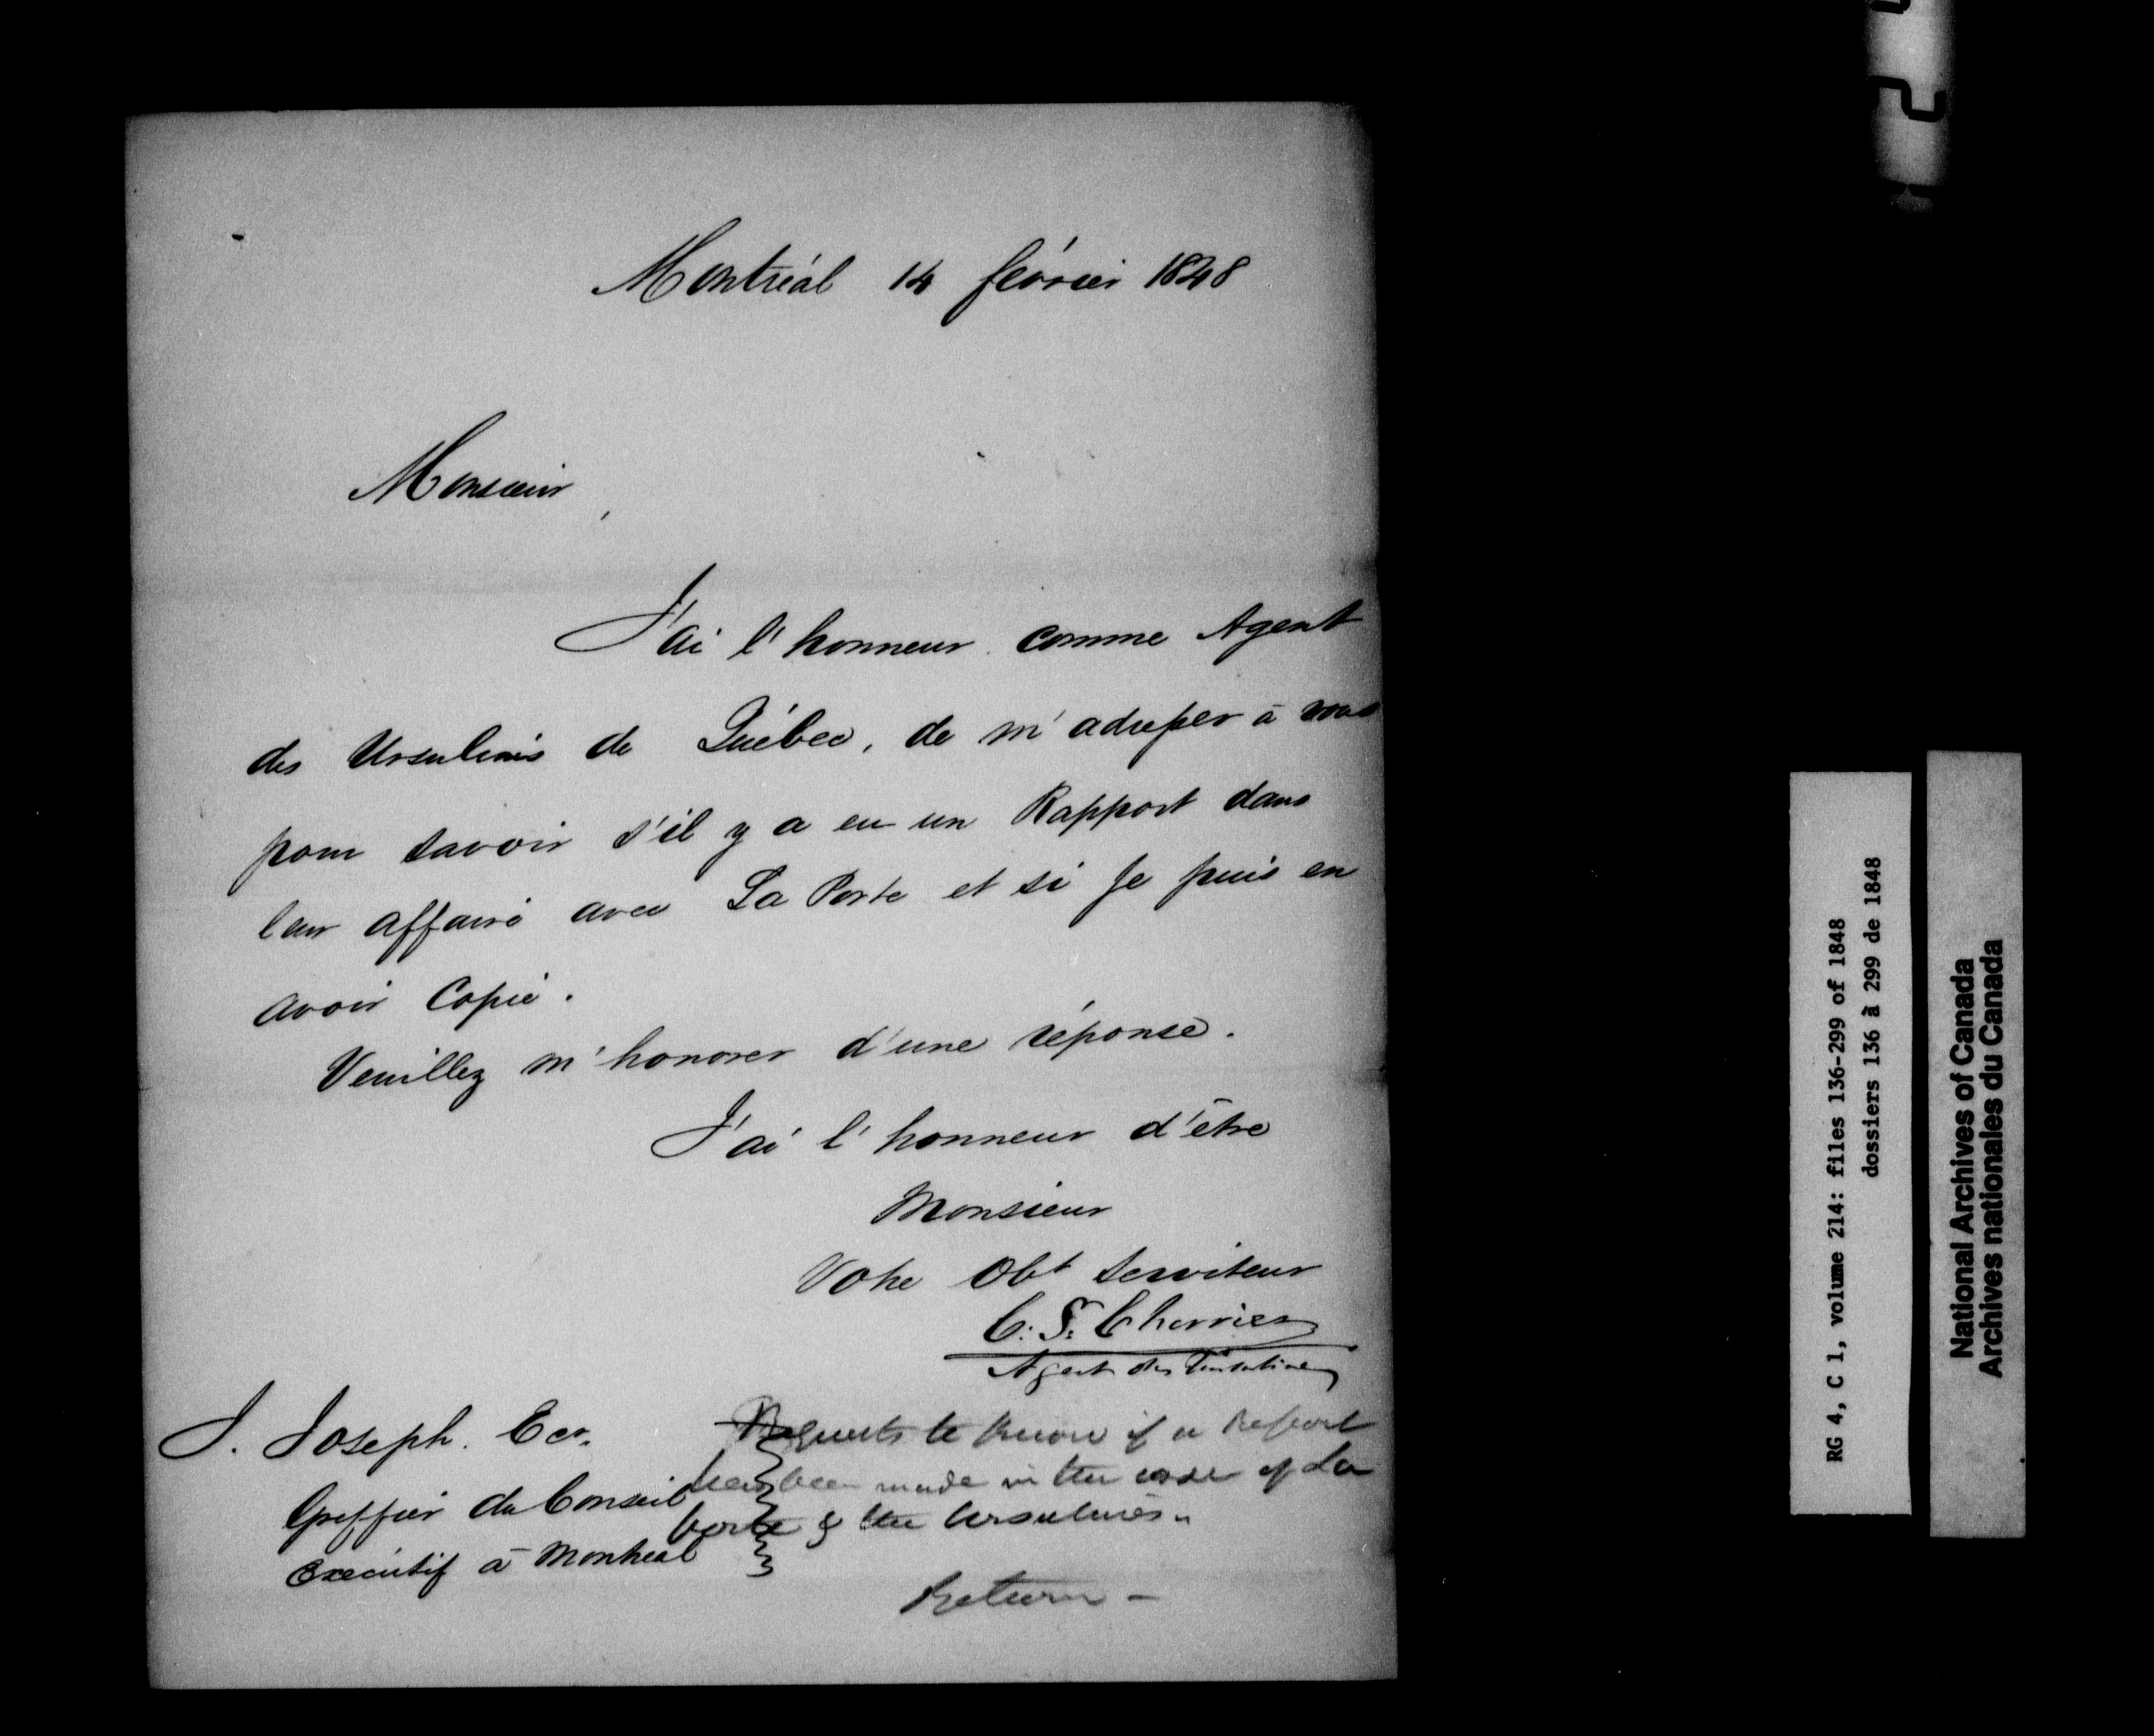 Montréal 14 février 1848
Monsieur,
J'ai l'honneur comme Agent
des Ursulines de Québec, de m'adresser à vous
pour savoir s'il y a eu un Rapport dans
leur affaire avec La Porte et si je puis en
avoir Copie.
Veuillez m'honorer d'une réponse.
J'ai l'honneur d'être
Monsieur
Votre Obt serviteur
C. S. Cherrier
Agent des Ursulines
J. Joseph. Ecr.
Greffier du Conseil
Executif à Montreal
Requests to know if a Report
has been made in the case of La
porte & the Ursulines.
Return -
RG 4, C 1, volume 214: files 136-299 of 1848
dossiers 136 à 299 de 1848
National Archives of Canada
Archives nationales du Canada